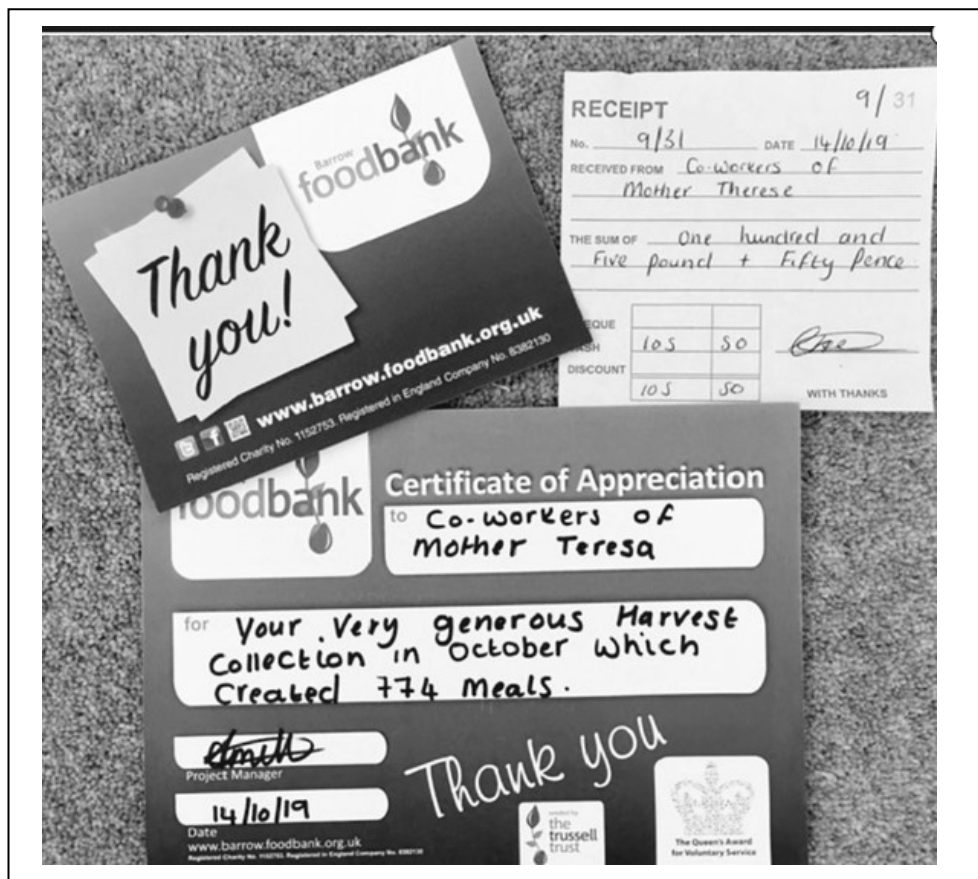 Barrow
foodbank
Thank
you!
www.barrow.foodbank.org.uk
Registered Charity No. 1152753. Registered in England Company No. 8382130
9/31
RECEIPT
No. 9/31 DATE 14/10/19
RECEIVED FROM Co-workers of
Mother Therese
THE SUM OF One hundred and
Five pound + Fifty Pence
EQUE
ASH 105 50
DISCOUNT
105 50
WITH THANKS
foodbank
Certificate of Appreciation
to Co-workers of
Mother Teresa
for Your Very generous Harvest
Collection in October which
Created 774 Meals.
Project Manager
14/10/19
Date
www.barrow.foodbank.org.uk
Registered Charity No. 1152753. Registered in England Company No. 8382130
Thank you
the
trussell
trust
The Queen's Award
for Voluntary Service